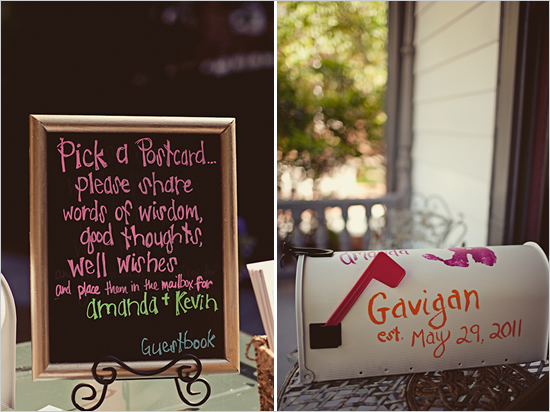 Pick a Postcard...
please share
words of wisdom,
good thoughts,
well wishes
and place them in the mailbox for
amanda + Kevin
Guestbook
amanda
Gavigan
est. May 29, 2011